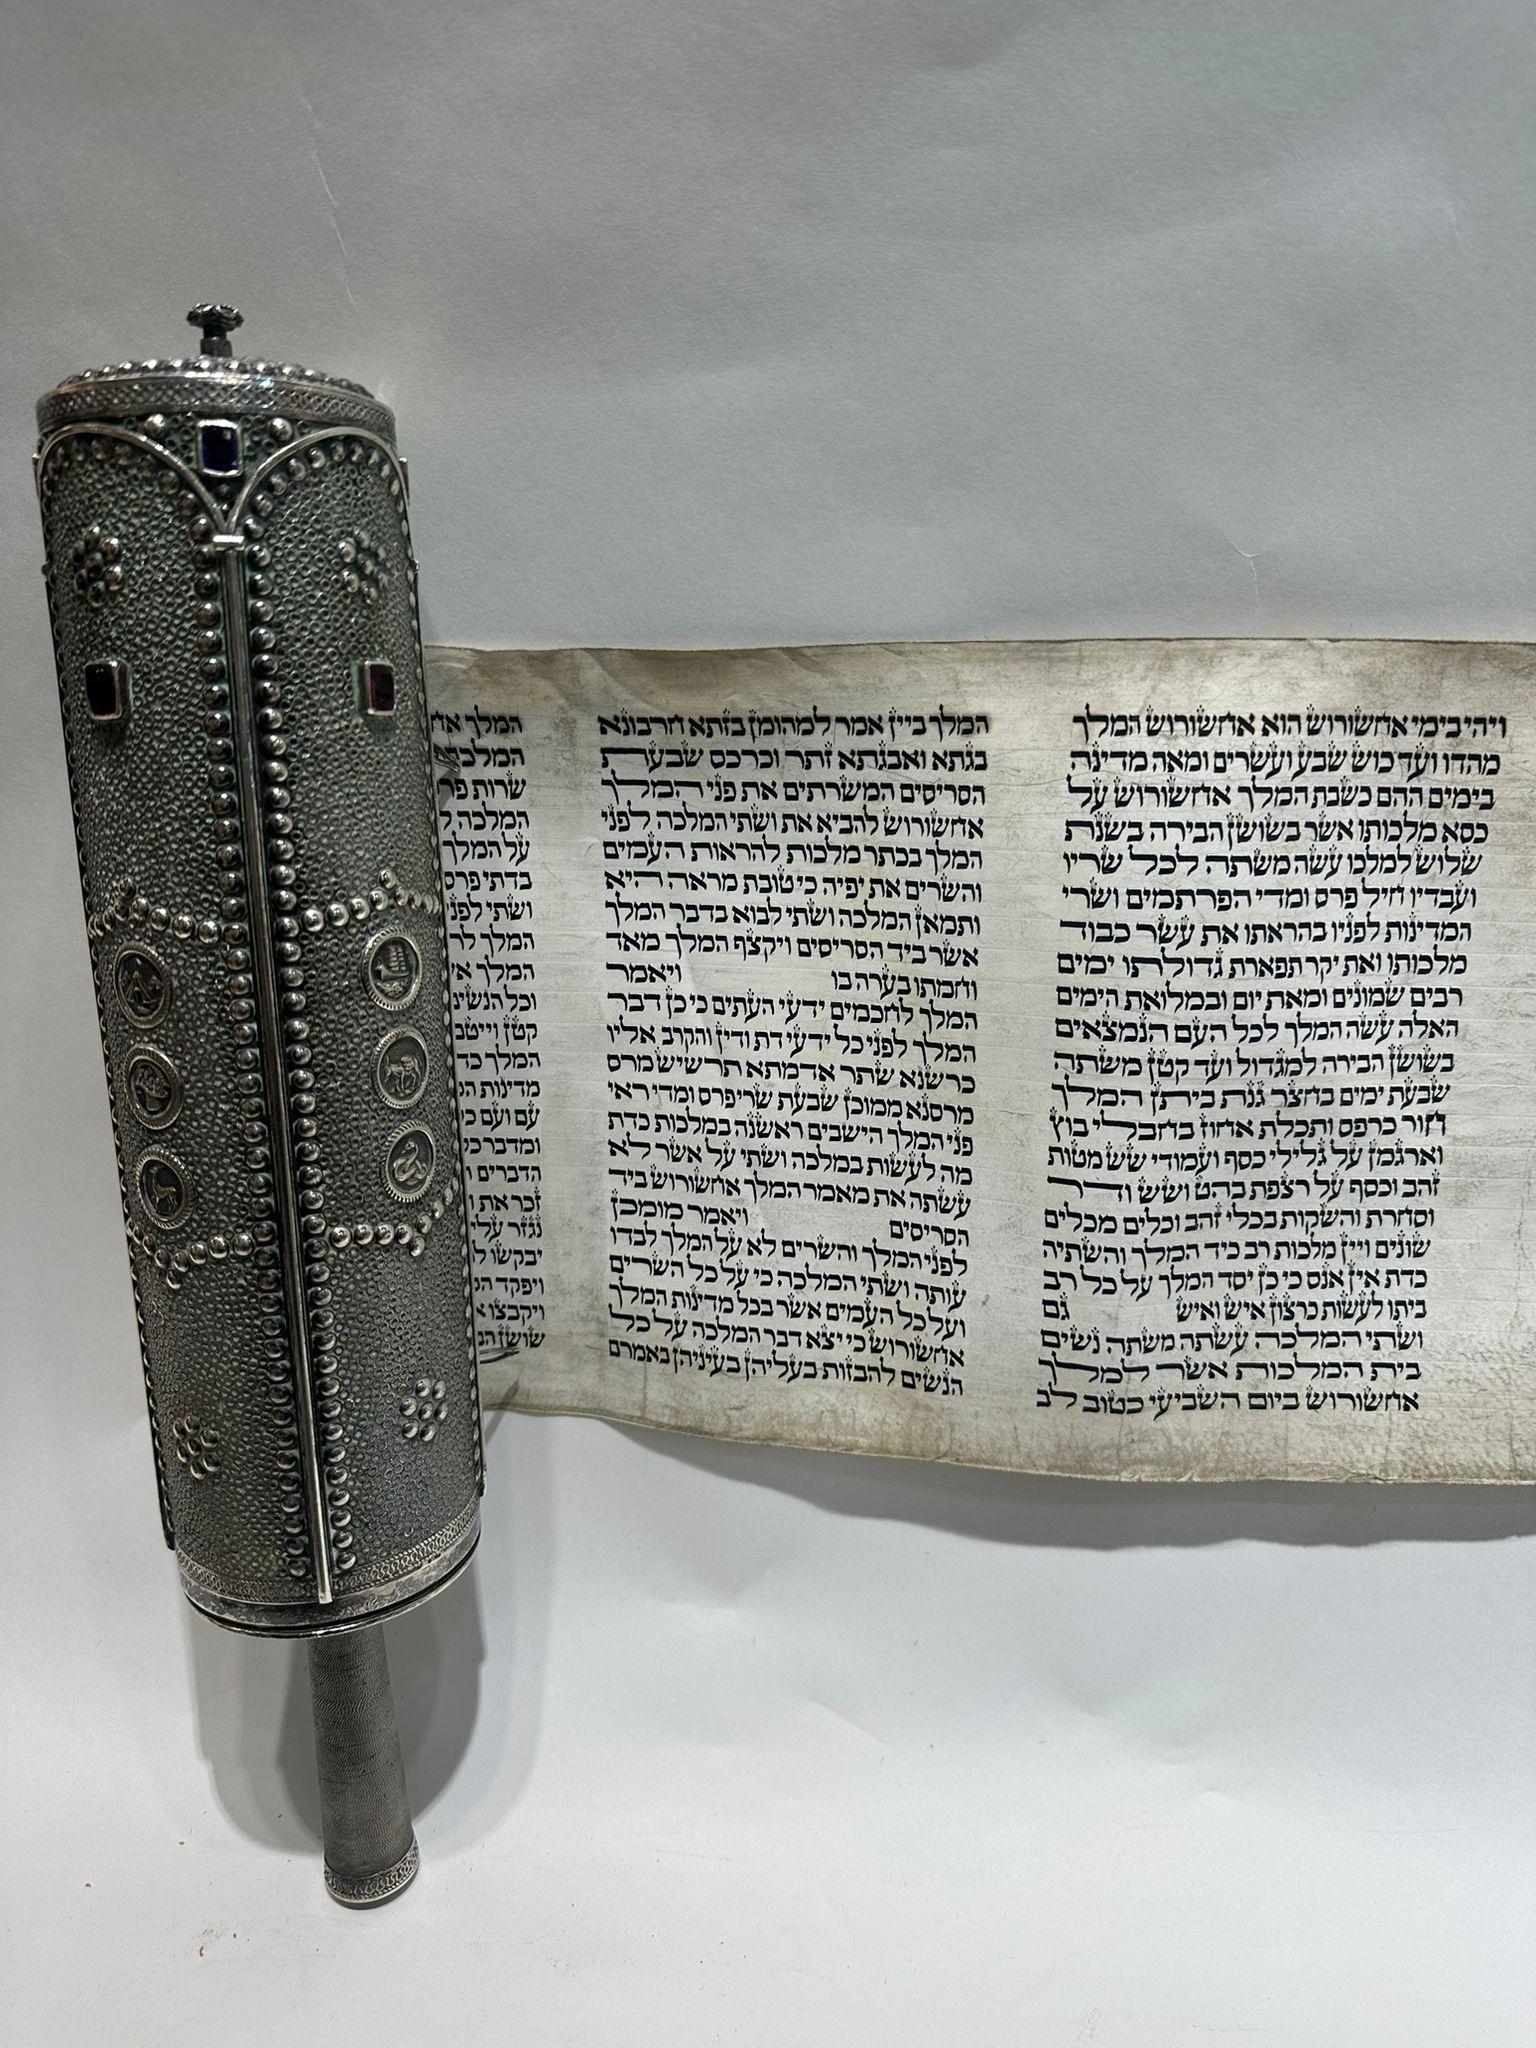 ויהי בימי אחשורוש הוא אחשורוש המלך
מהדו ועד כוש שבע ועשרים ומאה מדינה
בימים ההם כשבת המלך אחשורוש על
כסא מלכותו אשר בשושן הבירה בשנת
שלוש למלכו עשה משתה לכל שריו
ועבדיו חיל פרס ומדי הפרתמים ושרי
המדינות לפניו בהראתו את עשר כבוד
מלכותו ואת יקר תפארת גדולתו ימים
רבים שמונים ומאת יום ובמלואת הימים
האלה עשה המלך לכל העם הנמצאים
בשושן הבירה למגדול ועד קטן משתה
שבעת ימים בחצר גנת ביתן המלך
חור כרפס ותכלת אחוז בחבלי בוץ
וארגמן על גלילי כסף ועמודי שש מטות
זהב וכסף על רצפת בהט ושש ודר
וסחרת והשקות בכלי זהב וכלים מכלים
שונים ויין מלכות רב כיד המלך והשתיה
כדת אין אנס כי כן יסד המלך על כל רב
ביתו לעשות כרצון איש ואיש גם
ושתי המלכה עשתה משתה נשים
בית המלכות אשר למלך
אחשורוש ביום השביעי כטוב לב
המלך ביין אמר למהומן בזתא חרבונא
בגתא ואבגתא זתר וכרכס שבעת
הסריסים המשרתים את פני המלך
אחשורוש להביא את ושתי המלכה לפני
המלך בכתר מלכות להראות העמים
והשרים את יפיה כי טובת מראה היא
ותמאן המלכה ושתי לבוא בדבר המלך
אשר ביד הסריסים ויקצף המלך מאד
וחמתו בערה בו ויאמר
המלך לחכמים ידעי העתים כי כן דבר
המלך לפני כל ידעי דת ודין והקרב אליו
כרשנא שתר אדמתא תרשיש מרס
מרסנא ממוכן שבעת שרי פרס ומדי ראי
פני המלך הישבים ראשנה במלכות כדת
מה לעשות במלכה ושתי על אשר לא
עשתה את מאמר המלך אחשורוש ביד
הסריסים ויאמר מומכן
לפני המלך והשרים לא על המלך לבדו
עותה ושתי המלכה כי על כל השרים
ועל כל העמים אשר בכל מדינות המלך
אחשורוש כי יצא דבר המלכה על כל
הנשים להבזות בעליהן בעיניהן באמרם
המלך
המלכה
שרות
המלכה
על המלך
בדתי פרס
ושתי לפני
המלך
המלך
וכל הנשים
קטן וייטב
המלך
מדינות
עם ועם
ומדבר
הדברים
זכר את
נגזר עליה
יבקשו
ויפקד
ויקבצו
שושן